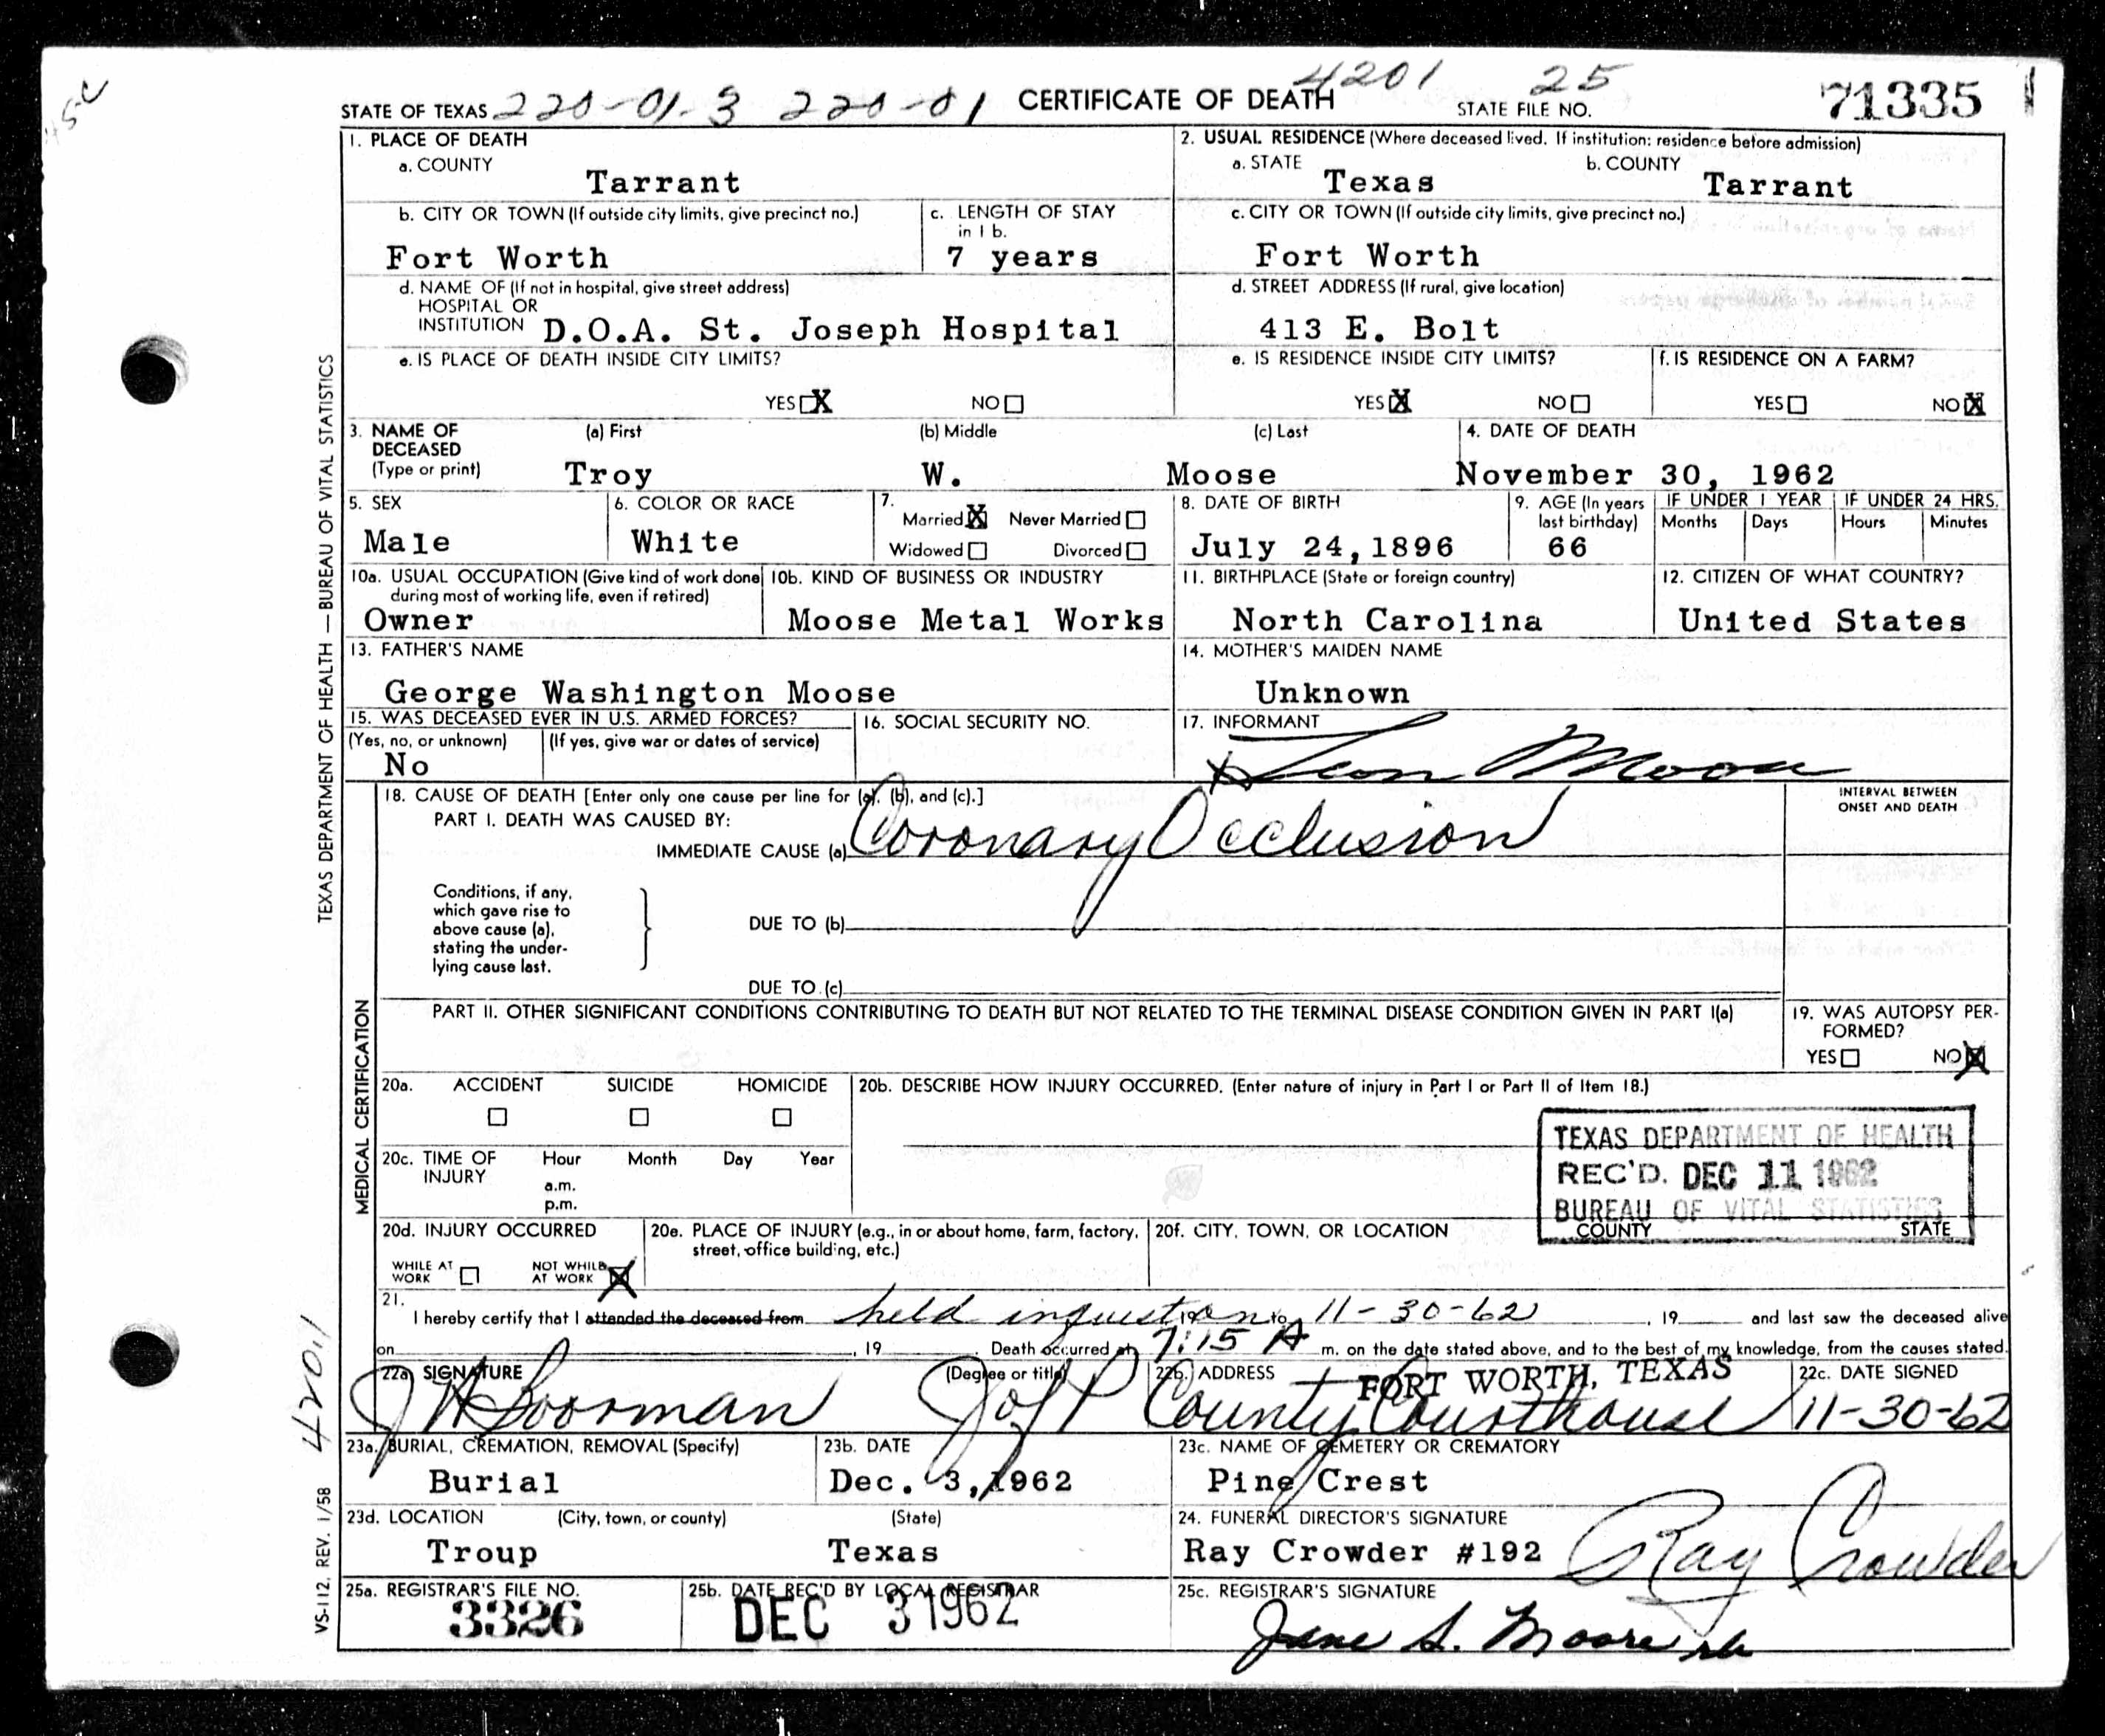 4201 25
STATE OF TEXAS 220-01-3 220-01 CERTIFICATE OF DEATH STATE FILE NO. 71335
1. PLACE OF DEATH
a. COUNTY
Tarrant
2. USUAL RESIDENCE (Where deceased lived. If institution: residence before admission)
a. STATE b. COUNTY
Texas Tarrant
b. CITY OR TOWN (If outside city limits, give precinct no.)
Fort Worth
c. LENGTH OF STAY
in 1 b.
7 years
c. CITY OR TOWN (If outside city limits, give precinct no.)
Fort Worth
d. NAME OF (If not in hospital, give street address)
HOSPITAL OR
INSTITUTION D.O.A. St. Joseph Hospital
d. STREET ADDRESS (If rural, give location)
413 E. Bolt
e. IS PLACE OF DEATH INSIDE CITY LIMITS?
YES X NO
e. IS RESIDENCE INSIDE CITY LIMITS?
YES X NO
f. IS RESIDENCE ON A FARM?
YES NO X
3. NAME OF DECEASED
(Type or print)
(a) First (b) Middle (c) Last
Troy W. Moose
4. DATE OF DEATH
November 30, 1962
5. SEX
Male
6. COLOR OR RACE
White
7.
Married X Never Married
Widowed Divorced
8. DATE OF BIRTH
July 24, 1896
9. AGE (In years
last birthday)
66
IF UNDER 1 YEAR IF UNDER 24 HRS.
Months Days Hours Minutes
10a. USUAL OCCUPATION (Give kind of work done
during most of working life, even if retired)
Owner
10b. KIND OF BUSINESS OR INDUSTRY
Moose Metal Works
11. BIRTHPLACE (State or foreign country)
North Carolina
12. CITIZEN OF WHAT COUNTRY?
United States
13. FATHER'S NAME
George Washington Moose
14. MOTHER'S MAIDEN NAME
Unknown
15. WAS DECEASED EVER IN U.S. ARMED FORCES?
(Yes, no, or unknown) (If yes, give war or dates of service)
No
16. SOCIAL SECURITY NO.
17. INFORMANT
X Leon Moose
18. CAUSE OF DEATH [Enter only one cause per line for (a), (b), and (c).]
PART I. DEATH WAS CAUSED BY:
IMMEDIATE CAUSE (a) Coronary Occlusion
INTERVAL BETWEEN
ONSET AND DEATH
Conditions, if any,
which gave rise to
above cause (a),
stating the under-
lying cause last.
DUE TO (b)
DUE TO (c)
PART II. OTHER SIGNIFICANT CONDITIONS CONTRIBUTING TO DEATH BUT NOT RELATED TO THE TERMINAL DISEASE CONDITION GIVEN IN PART I(a)
19. WAS AUTOPSY PER-
FORMED?
YES NO X
20a. ACCIDENT SUICIDE HOMICIDE
20b. DESCRIBE HOW INJURY OCCURRED. (Enter nature of injury in Part I or Part II of Item 18.)
20c. TIME OF
INJURY
Hour Month Day Year
a.m.
p.m.
TEXAS DEPARTMENT OF HEALTH
REC'D. DEC 11 1962
BUREAU OF VITAL STATISTICS
20d. INJURY OCCURRED
WHILE AT
WORK
NOT WHILE
AT WORK X
20e. PLACE OF INJURY (e.g., in or about home, farm, factory,
street, office building, etc.)
20f. CITY, TOWN, OR LOCATION COUNTY STATE
21.
I hereby certify that I attended the deceased from held inquest on 19 to 11-30-62, 19 and last saw the deceased alive
on , 19 . Death occurred at 7:15 A m. on the date stated above, and to the best of my knowledge, from the causes stated.
22a. SIGNATURE (Degree or title)
J of P
22b. ADDRESS FORT WORTH, TEXAS
County Courthouse
22c. DATE SIGNED
11-30-62
23a. BURIAL, CREMATION, REMOVAL (Specify)
Burial
23b. DATE
Dec. 3, 1962
23c. NAME OF CEMETERY OR CREMATORY
Pine Crest
23d. LOCATION (City, town, or county) (State)
Troup Texas
24. FUNERAL DIRECTOR'S SIGNATURE
Ray Crowder #192 Ray Crowder
25a. REGISTRAR'S FILE NO.
3326
25b. DATE REC'D BY LOCAL REGISTRAR
DEC 3 1962
25c. REGISTRAR'S SIGNATURE
Jane S. Moore
TEXAS DEPARTMENT OF HEALTH — BUREAU OF VITAL STATISTICS
MEDICAL CERTIFICATION
4201
VS-112, REV. 1/58